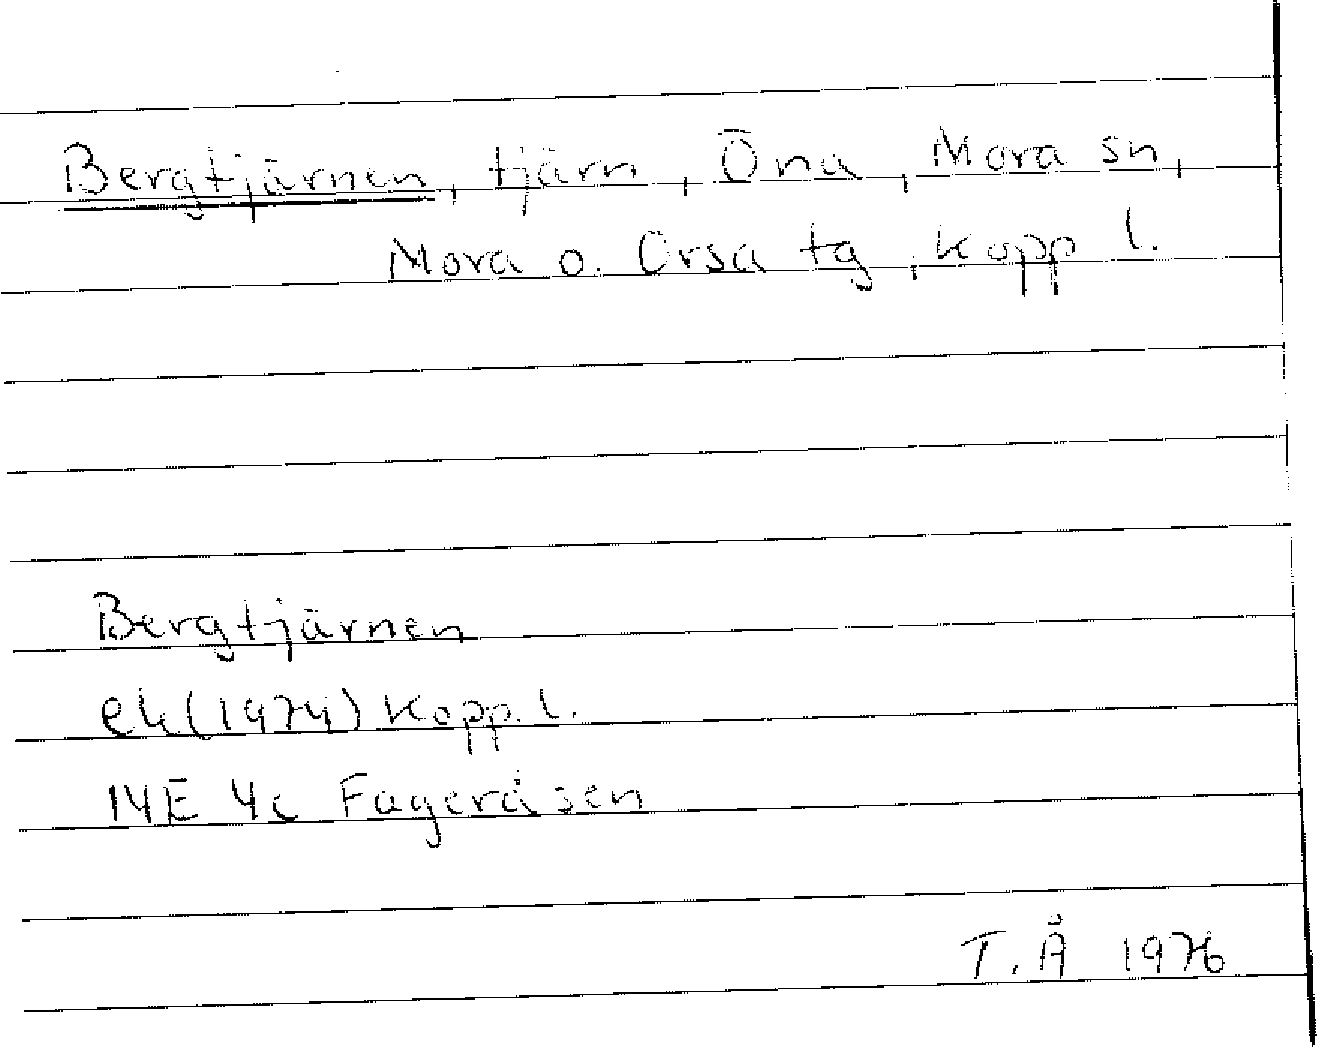 Bergtjärnen, tjärn, Öna, Mora sn,
Mora o. Orsa tg, Kopp l.
Bergtjärnen
ek (1974) Kopp. l.
14E 4c Fageråsen
T. Å 1976